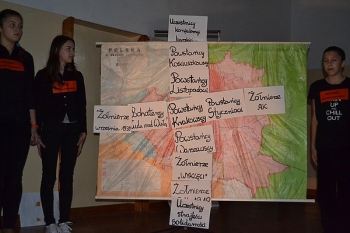 Uczestnicy
konfederacji
barskiej
POLSKA
Powstańcy
Kościuszkowscy
Powstańcy
Listopadowi
Żołnierze
września
Bohaterzy
Powstańcy
Krakowscy
Powstańcy
Styczniowi
Żołnierze
AK
Powstańcy
Warszawscy
Żołnierze
"WYKLĘCI"
Żołnierze
Uczestnicy
strajków
Solidarności
UP
CHILL
OUT